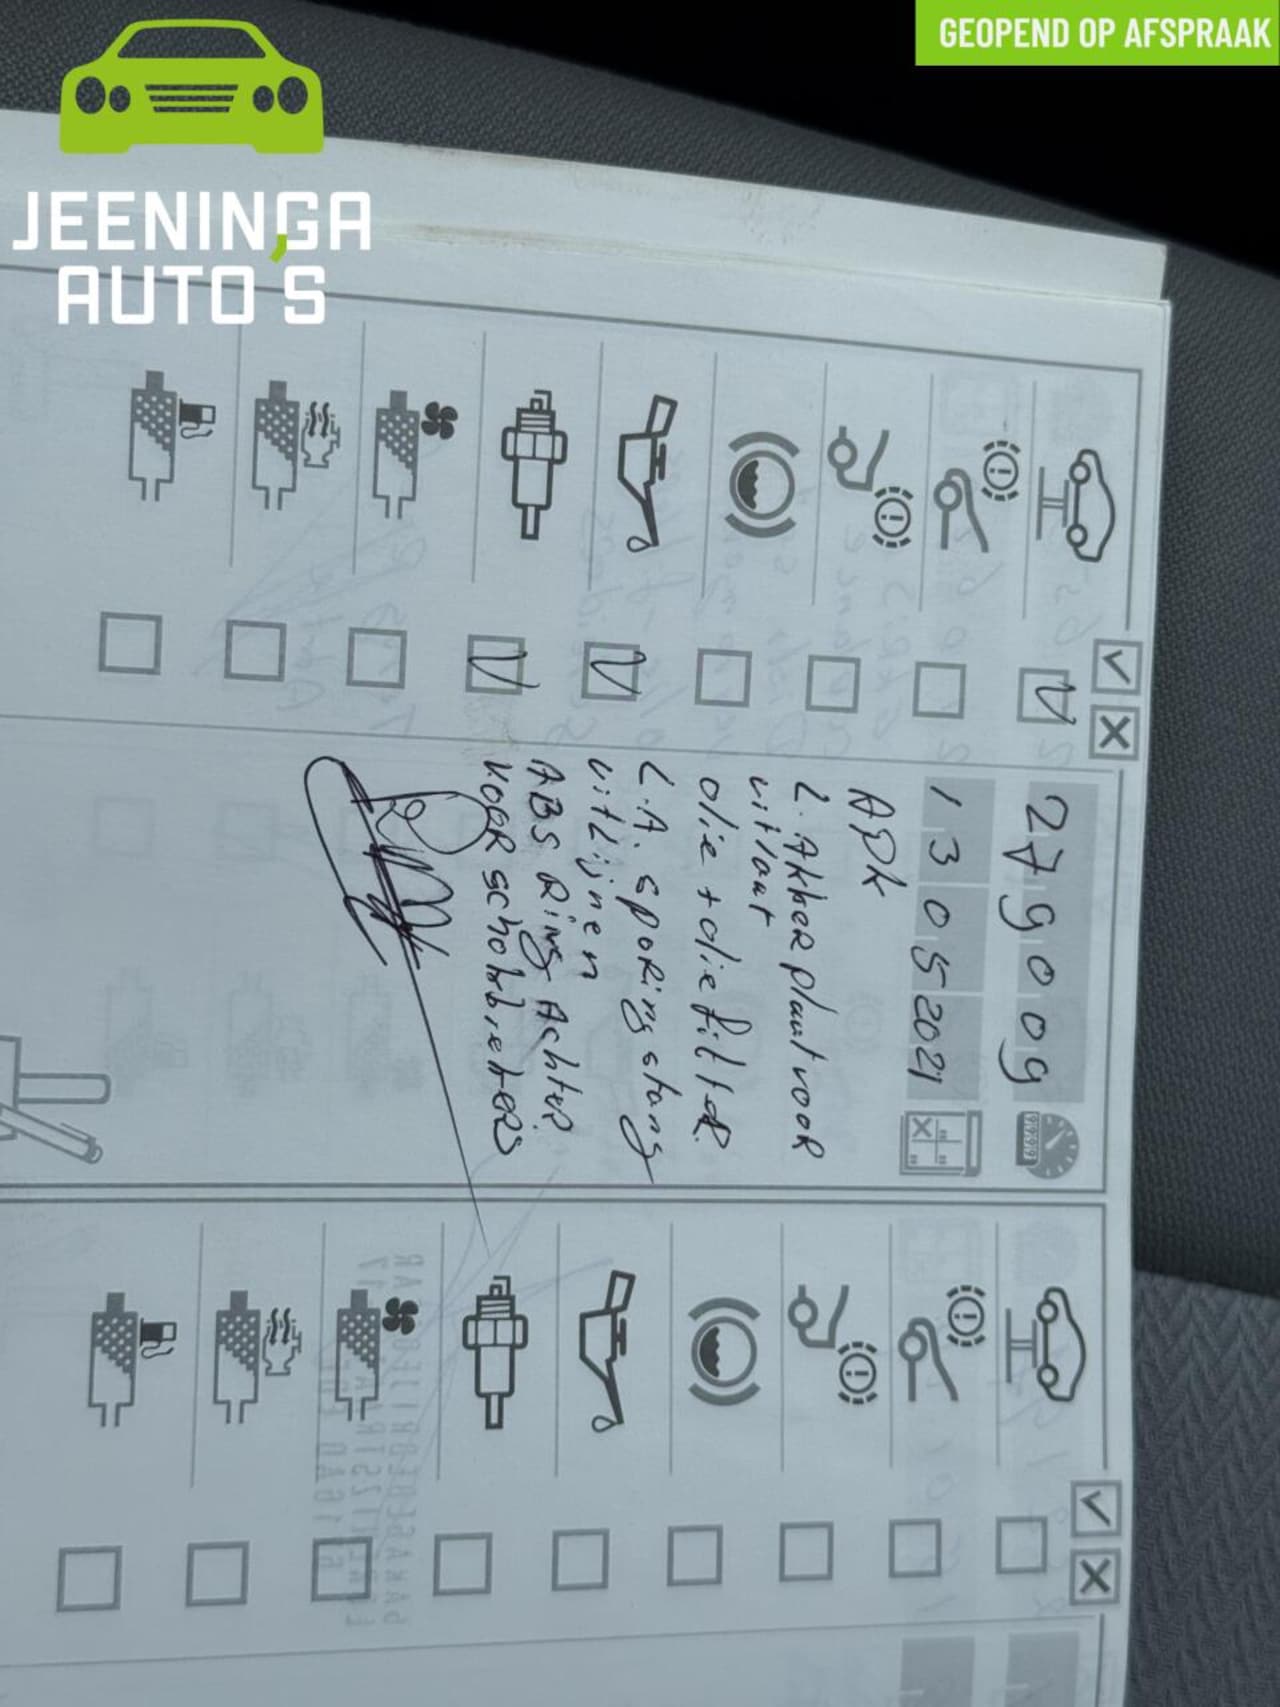 GEOPEND OP AFSPRAAK
JEENINGA
AUTO'S
279009
13052021
APK
2. Akher plaat voor
uitlaat
olie + olie filter.
L.A. sporing stang
uitlijnen
ABS Ring Achter.
voor schokbrekers